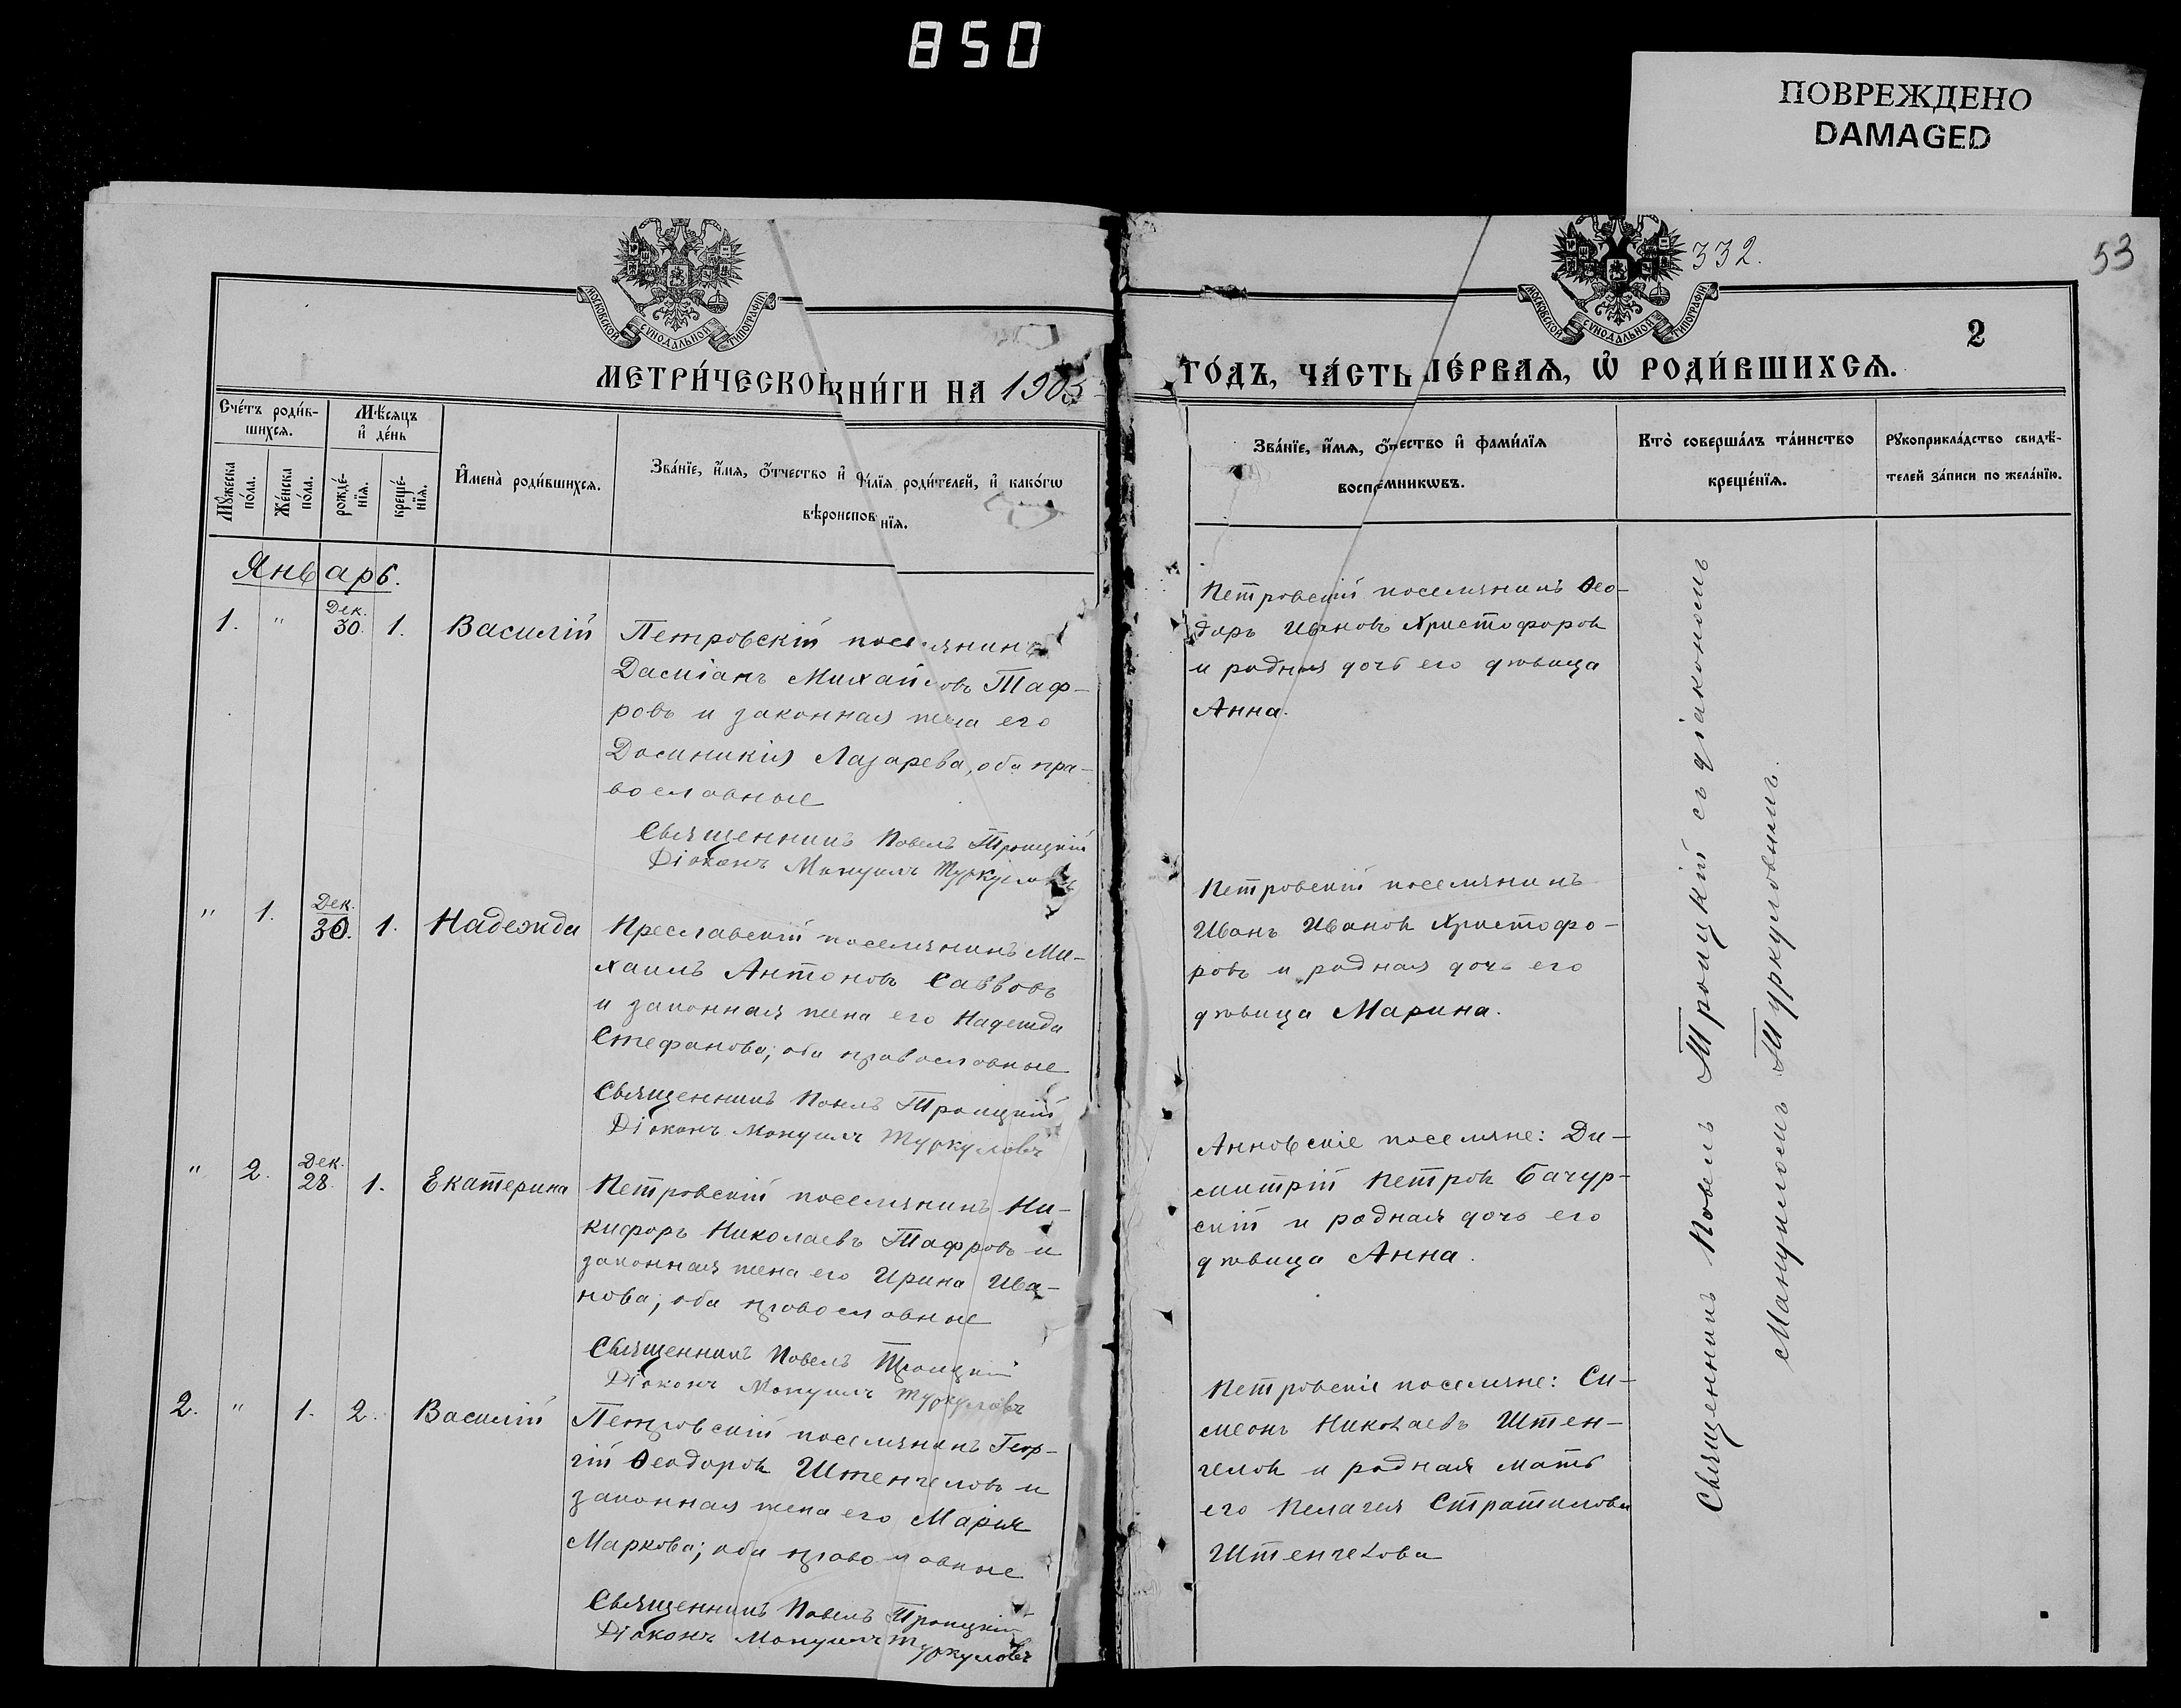 850
ПОВРЕЖДЕНО
DAMAGED
332.
53
МОСКОВСКОЙ СѴНОДАЛЬНОЙ ТИПОГРАФІИ
МОСКОВСКОЙ СѴНОДАЛЬНОЙ ТИПОГРАФІИ
2
МЕТРИ́ЧЕСКОЙ КНИ́ГИ НА 1905
ГО́ДЪ, ЧА́СТЬ ПЕ́РВАѦ, Ѽ РОДИ́ВШИХСѦ.
Сче́тъ роди́в-
шихсѧ.
Мѣ́сѧцъ
и҆ де́нь
Мꙋ́жеска
по́ла.
Же́нска
по́ла.
рожде́-
нїѧ.
креще́-
нїѧ.
И҆мена̀ роди́вшихсѧ.
Зва́нїе, и҆́мѧ, ѻ҆́тчество и҆ фамилїѧ роди́телей, и҆ како́гѡ
вѣроисповѣданїѧ.
Зва́нїе, и҆́мѧ, ѻ҆́тчество и҆ фами́лїѧ
воспрїемникѡвъ.
Кто̀ соверша́лъ та́инство
креще́нїѧ.
Рꙋкоприкла́дство свидѣ́-
телей за́писи по жела́нїю.
Январь.
1. " Дек. 30. 1. Василій
Петровскій поселянинъ
Даміанъ Михайловъ Таф-
ровъ и законная жена его
Домникія Лазарева, оба пра-
вославные
Священникъ Павелъ Троицкій
Діаконъ Мануилъ Туркуловъ
Петровскій поселянинъ Ѳео-
доръ Ивановъ Христофоровъ
и родная дочь его дѣвица
Анна.
" 1. Дек. 30. 1. Надежда
Преславскій поселянинъ Ми-
хаилъ Антоновъ Савовъ
и законная жена его Надежда
Стефанова; оба православные
Священникъ Павелъ Троицкій
Діаконъ Мануилъ Туркуловъ
Петровскій поселянинъ
Иванъ Ивановъ Христофо-
ровъ и родная дочь его
дѣвица Марина.
" 2. Дек. 28. 1. Екатерина
Петровскій поселянинъ Ни-
кифоръ Николаевъ Тафровъ и
законная жена его Ирина Ива-
нова; оба православные
Священникъ Павелъ Троицкій
Діаконъ Мануилъ Туркуловъ
Анновскіе поселяне: Ди-
митрій Петровъ Бачур-
скій и родная дочь его
дѣвица Анна.
2. " 1. 2. Василій
Петровскій поселянинъ Геор-
гій Ѳеодоровъ Штенчеловъ и
законная жена его Марія
Маркова; оба православные
Священникъ Павелъ Троицкій
Діаконъ Мануилъ Туркуловъ
Петровскіе поселяне: Си-
меонъ Николаевъ Штен-
челов и родная мать
его Пелагея Стратилова
Штенчелова
Священникъ Павелъ Троицкій съ діакономъ
Мануиломъ Туркуловымъ.